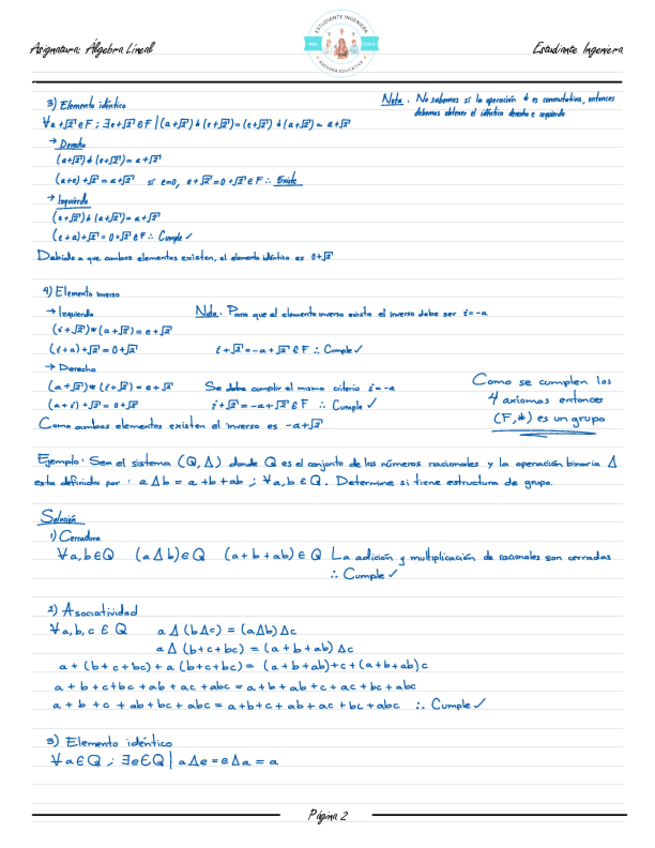 Asignatura: Álgebra Lineal
ESTUDIANTE INGENIERA
ASESORIA EDUCATIVA
Estudiante Ingeniera
3) Elemento idéntico
Nota. No sabemos si la operación * es conmutativa, entonces
debemos obtener el idéntico derecho e izquierdo
∀a+√2 ∈ F ; ∃e+√2 ∈ F | (a+√2)*(e+√2)=(e+√2)*(a+√2)= a+√2
→ Derecho
(a+√2)*(e+√2)=a+√2
(a+e)+√2 = a+√2 si e=0, e+√2=0+√2 ∈ F ∴ Existe
→ Izquierdo
(e+√2)*(a+√2)=a+√2
(e+a)+√2=0+√2 ∈ F ∴ Cumple ✓
Debido a que ambos elementos existen, el elemento idéntico es 0+√2
4) Elemento inverso
→ Izquierdo
Nota. Para que el elemento inverso exista el inverso debe ser i=-a
(i+√2)*(a+√2)=e+√2
(i+a)+√2=0+√2 i+√2=-a+√2 ∈ F ∴ Cumple ✓
→ Derecho
(a+√2)*(i+√2)=e+√2 Se debe cumplir el mismo criterio i=-a
(a+i)+√2=0+√2 i+√2=-a+√2 ∈ F ∴ Cumple ✓
Como ambos elementos existen el inverso es -a+√2
Como se cumplen los
4 axiomas entonces
(F,*) es un grupo
Ejemplo: Sea el sistema (Q,Δ) donde Q es el conjunto de los números racionales y la operación binaria Δ
esta definida por : a Δ b = a +b+ab ; ∀a,b ∈ Q. Determine si tiene estructura de grupo.
Solución
1) Cerradura
∀a,b∈Q (aΔb)∈Q (a+b+ab)∈Q La adición y multiplicación de racionales son cerradas
∴ Cumple ✓
2) Asociatividad
∀a,b,c ∈ Q a Δ (bΔc) = (aΔb)Δc
a Δ (b+c+bc) = (a+b+ab) Δc
a + (b+c+bc)+a (b+c+bc) = (a+b+ab)+c+(a+b+ab)c
a+b+c+bc+ab+ac+abc = a+b+ab+c+ac+bc+abc
a+b+c+ab+bc+abc = a+b+c+ab+ac+bc+abc ∴ Cumple ✓
3) Elemento idéntico
∀a∈Q ; ∃e∈Q | aΔe=eΔa=a
Página 2